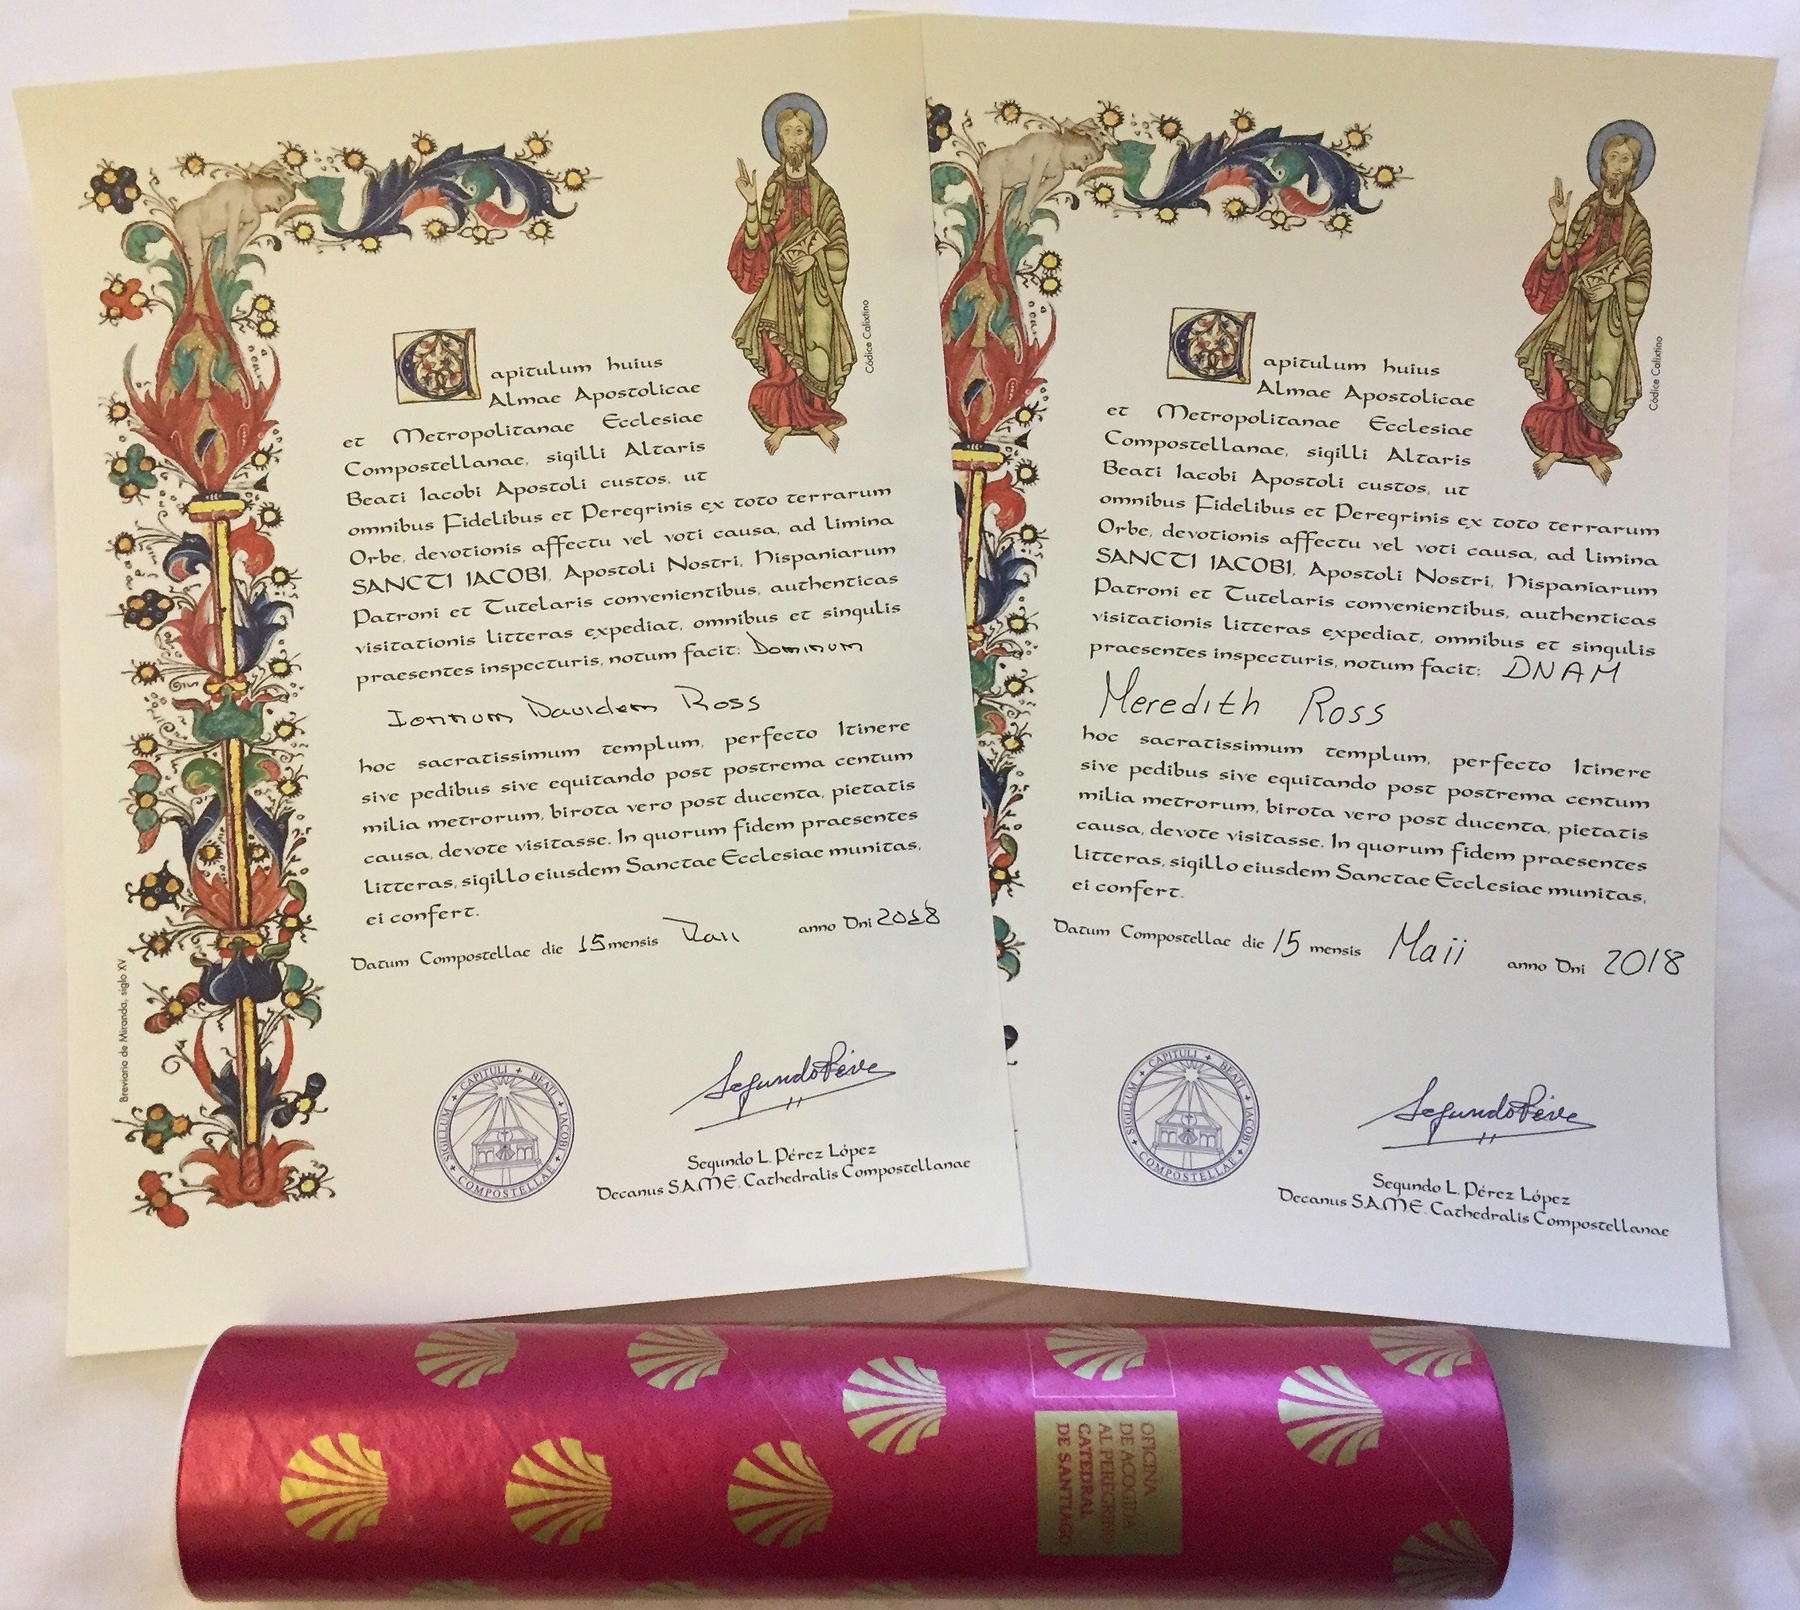 Capitulum huius
Almae Apostolicae
et Metropolitanae Ecclesiae
Compostellanae, sigilli Altaris
Beati Iacobi Apostoli custos, ut
omnibus Fidelibus et Peregrinis ex toto terrarum
Orbe, devotionis affectu vel voti causa, ad limina
SANCTI IACOBI, Apostoli Nostri, Hispaniarum
Patroni et Tutelaris convenientibus, authenticas
visitationis litteras expediat, omnibus et singulis
praesentes inspecturis, notum facit: Dominum
Ioannum Davidem Ross
hoc sacratissimum templum, perfecto Itinere
sive pedibus sive equitando post postrema centum
milia metrorum, birota vero post ducenta, pietatis
causa, devote visitasse. In quorum fidem praesentes
litteras, sigillo eiusdem Sanctae Ecclesiae munitas,
ei confert.
Datum Compostellae die 15 mensis Maii anno Dni 2018
SIGILLUM CAPITULI BEATI IACOBI COMPOSTELLAE
Segundo Pérez
Segundo L. Pérez López
Decanus S.A.M.E. Cathedralis Compostellanae
Códice Calixtino
Breviario de Miranda, siglo XV
Capitulum huius
Almae Apostolicae
et Metropolitanae Ecclesiae
Compostellanae, sigilli Altaris
Beati Iacobi Apostoli custos, ut
omnibus Fidelibus et Peregrinis ex toto terrarum
Orbe, devotionis affectu vel voti causa, ad limina
SANCTI IACOBI, Apostoli Nostri, Hispaniarum
Patroni et Tutelaris convenientibus, authenticas
visitationis litteras expediat, omnibus et singulis
praesentes inspecturis, notum facit: DNAM
Meredith Ross
hoc sacratissimum templum, perfecto Itinere
sive pedibus sive equitando post postrema centum
milia metrorum, birota vero post ducenta, pietatis
causa, devote visitasse. In quorum fidem praesentes
litteras, sigillo eiusdem Sanctae Ecclesiae munitas,
ei confert.
Datum Compostellae die 15 mensis Maii anno Dni 2018
SIGILLUM CAPITULI BEATI IACOBI COMPOSTELLAE
Segundo Pérez
Segundo L. Pérez López
Decanus S.A.M.E. Cathedralis Compostellanae
Códice Calixtino
OFICINA
DE ACOGIDA
AL PEREGRINO
CATEDRAL
DE SANTIAGO